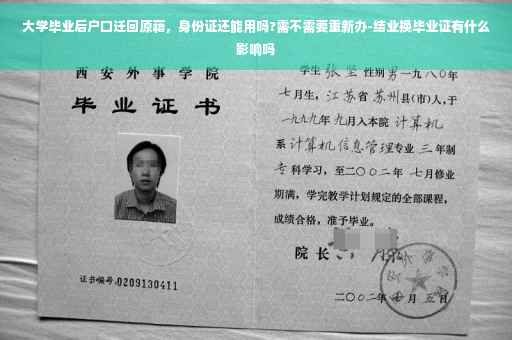 大学毕业后户口迁回原藉，身份证还能用吗?需不需要重新办-结业换毕业证有什么
影响吗
西安外事学院
毕业证书
证书编号:0209130411
学生张坚性别男一九八〇年
七月生，江苏省苏州县(市)人,于
一九九九年九月入本院计算机
系计算机信息管理专业三年制
专科学习，至二〇〇二年七月修业
期满，学完教学计划规定的全部课程，
成绩合格，准予毕业。
院长
二〇〇二年七月五日